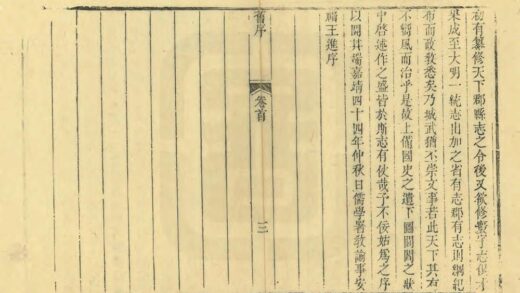 初有纂修天下郡縣志之令後又欲修寰宇志俱
果成至大明一統志出加之省有志郡有志則綱紀
布而政敎悉矣乃城武猶不崇文事若此天下其有
不嚮風而治乎是故上備國史之遺下圖閭閻之猷
中啓述作之盛皆於斯志有伏哉予不佞姑爲之序
以開其端嘉靖四十四年仲秋日儒學署敎諭事安
福王進序
舊序
卷首
三